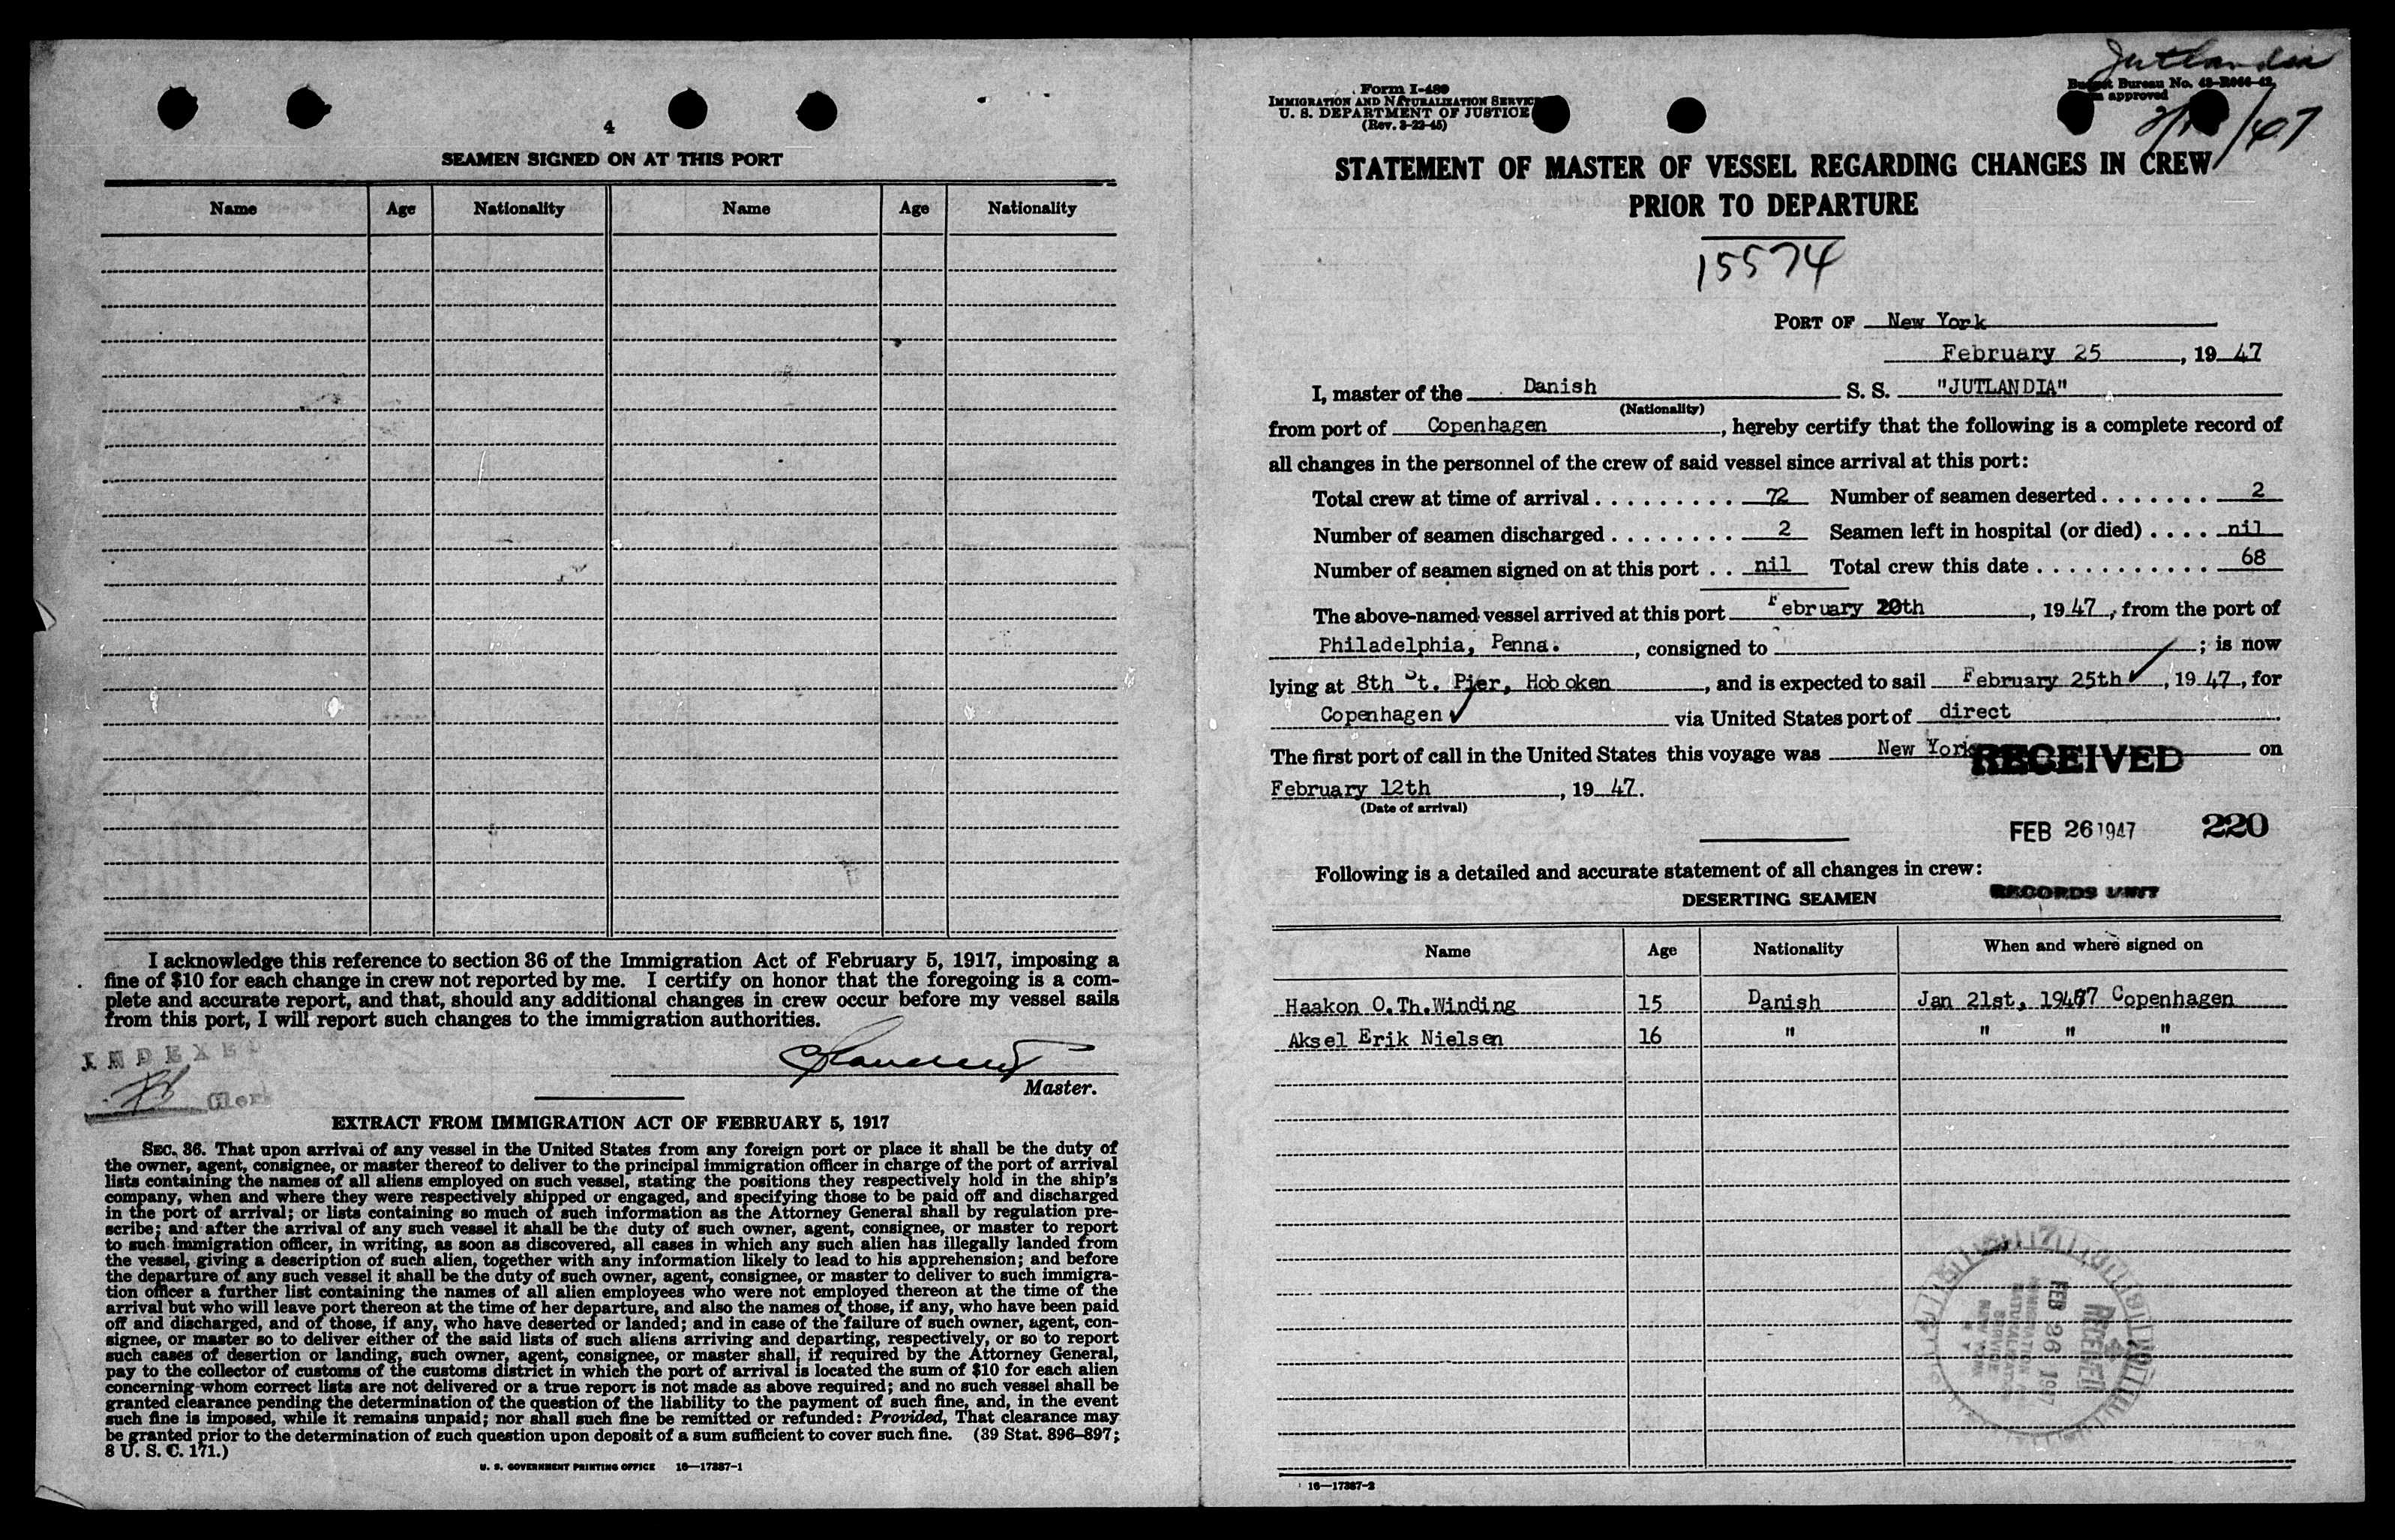 4
SEAMEN SIGNED ON AT THIS PORT
Name Age Nationality Name Age Nationality
I acknowledge this reference to section 36 of the Immigration Act of February 5, 1917, imposing a
fine of $10 for each change in crew not reported by me. I certify on honor that the foregoing is a com-
plete and accurate report, and that, should any additional changes in crew occur before my vessel sails
from this port, I will report such changes to the immigration authorities.
INDEXED
Clerk
Master.
EXTRACT FROM IMMIGRATION ACT OF FEBRUARY 5, 1917
SEC. 36. That upon arrival of any vessel in the United States from any foreign port or place it shall be the duty of
the owner, agent, consignee, or master thereof to deliver to the principal immigration officer in charge of the port of arrival
lists containing the names of all aliens employed on such vessel, stating the positions they respectively hold in the ship's
company, when and where they were respectively shipped or engaged, and specifying those to be paid off and discharged
in the port of arrival; or lists containing so much of such information as the Attorney General shall by regulation pre-
scribe; and after the arrival of any such vessel it shall be the duty of such owner, agent, consignee, or master to report
to such immigration officer, in writing, as soon as discovered, all cases in which any such alien has illegally landed from
the vessel, giving a description of such alien, together with any information likely to lead to his apprehension; and before
the departure of any such vessel it shall be the duty of such owner, agent, consignee, or master to deliver to such immigra-
tion officer a further list containing the names of all alien employees who were not employed thereon at the time of the
arrival but who will leave port thereon at the time of her departure, and also the names of those, if any, who have been paid
off and discharged, and of those, if any, who have deserted or landed; and in case of the failure of such owner, agent, con-
signee, or master so to deliver either of the said lists of such aliens arriving and departing, respectively, or so to report
such cases of desertion or landing, such owner, agent, consignee, or master shall, if required by the Attorney General,
pay to the collector of customs of the customs district in which the port of arrival is located the sum of $10 for each alien
concerning whom correct lists are not delivered or a true report is not made as above required; and no such vessel shall be
granted clearance pending the determination of the question of the liability to the payment of such fine, and, in the event
such fine is imposed, while it remains unpaid; nor shall such fine be remitted or refunded: Provided, That clearance may
be granted prior to the determination of such question upon deposit of a sum sufficient to cover such fine. (39 Stat. 896-897;
8 U. S. C. 171.)
U. S. GOVERNMENT PRINTING OFFICE 16—17387-1
Jutlandia
Form I-489
IMMIGRATION AND NATURALIZATION SERVICE
U. S. DEPARTMENT OF JUSTICE
(Rev. 3-22-45)
Budget Bureau No. 43-R066-42
approved
STATEMENT OF MASTER OF VESSEL REGARDING CHANGES IN CREW
PRIOR TO DEPARTURE
15574
PORT OF New York
February 25, 19 47
I, master of the Danish S. S. "JUTLANDIA"
(Nationality)
from port of Copenhagen, hereby certify that the following is a complete record of
all changes in the personnel of the crew of said vessel since arrival at this port:
Total crew at time of arrival . . . . . . . . . 72 Number of seamen deserted . . . . . . . 2
Number of seamen discharged . . . . . . . . 2 Seamen left in hospital (or died) . . . . nil
Number of seamen signed on at this port . . nil Total crew this date . . . . . . . . . . . 68
The above-named vessel arrived at this port February 20th, 19 47, from the port of
Philadelphia, Penna., consigned to ; is now
lying at 8th St. Pier, Hoboken, and is expected to sail February 25th ✓, 19 47, for
Copenhagen ✓ via United States port of direct
The first port of call in the United States this voyage was New York on
RECEIVED
February 12th, 19 47.
(Date of arrival)
FEB 26 1947 220
Following is a detailed and accurate statement of all changes in crew:
RECORDS UNIT
DESERTING SEAMEN
Name Age Nationality When and where signed on
Haakon O.Th.Winding 15 Danish Jan 21st, 1947 Copenhagen
Aksel Erik Nielsen 16 " " " "
RECEIVED
FEB 26 1947
IMMIGRATION
NATURALIZATION
SERVICE
NEW YORK
N Y
16—17387-2